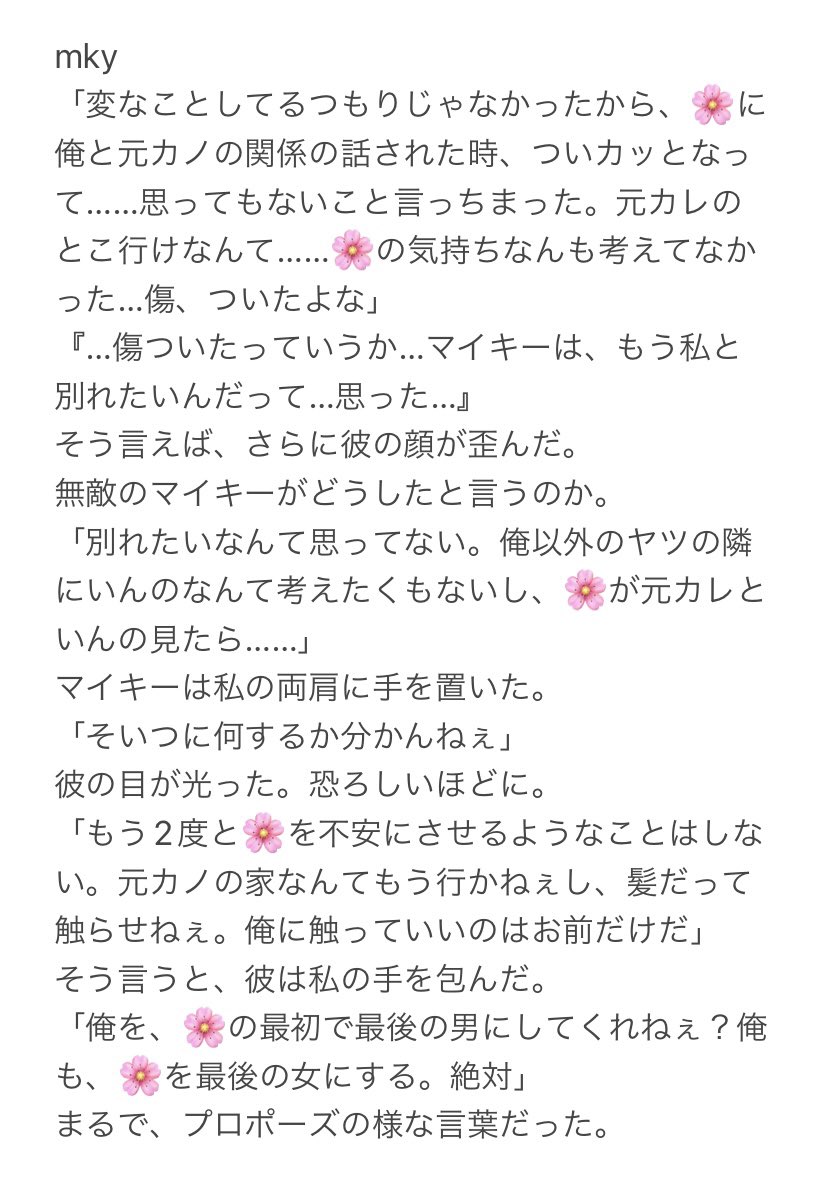 mky
「変なことしてるつもりじゃなかったから、🌸に
俺と元カノの関係の話された時、ついカッとなっ
て……思ってもないこと言っちまった。元カレの
とこ行けなんて……🌸の気持ちなんも考えてなか
った…傷、ついたよな」
『…傷ついたっていうか…マイキーは、もう私と
別れたいんだって…思った…』
そう言えば、さらに彼の顔が歪んだ。
無敵のマイキーがどうしたと言うのか。
「別れたいなんて思ってない。俺以外のヤツの隣
にいんのなんて考えたくもないし、🌸が元カレと
いんの見たら……」
マイキーは私の両肩に手を置いた。
「そいつに何するか分かんねぇ」
彼の目が光った。恐ろしいほどに。
「もう2度と🌸を不安にさせるようなことはしな
い。元カノの家なんてもう行かねぇし、髪だって
触らせねぇ。俺に触っていいのはお前だけだ」
そう言うと、彼は私の手を包んだ。
「俺を、🌸の最初で最後の男にしてくれねぇ？俺
も、🌸を最後の女にする。絶対」
まるで、プロポーズの様な言葉だった。